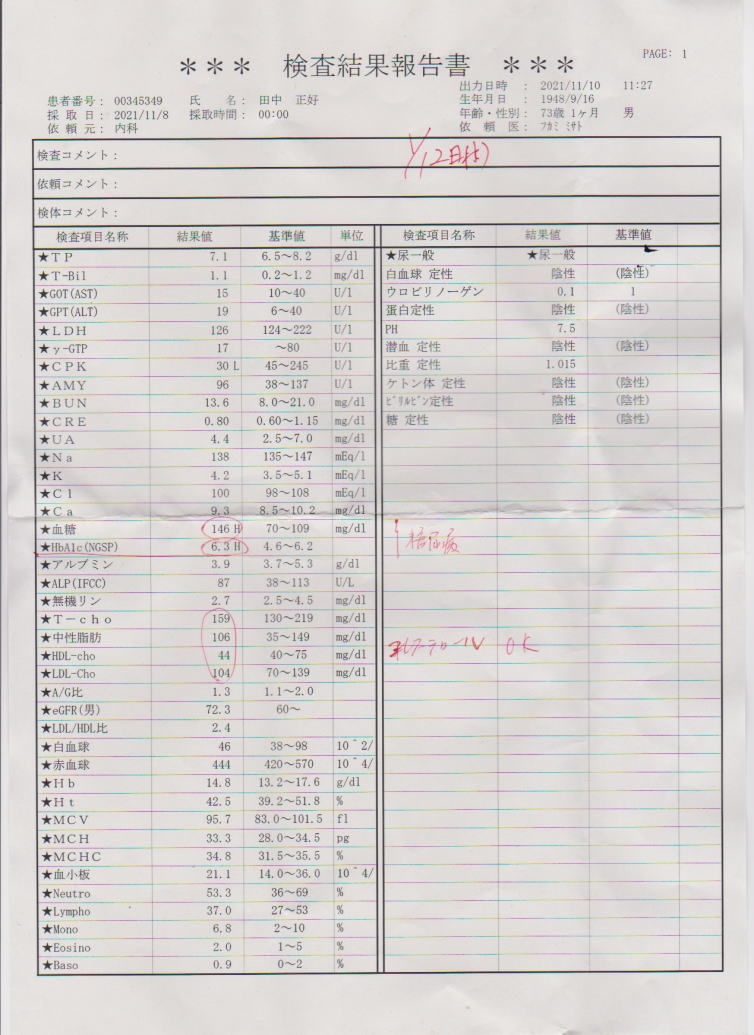 PAGE: 1
＊＊＊ 検査結果報告書 ＊＊＊
出力日時 : 2021/11/10 11:27
患者番号: 00345349 氏 名: 田中 正好 生年月日 : 1948/9/16
採 取 日: 2021/11/8 採取時間: 00:00 年齢・性別: 73歳 1ヶ月 男
依 頼 元: 内科 依 頼 医: ﾌｶﾐ ﾐｻﾄ
検査コメント:
依頼コメント:
検体コメント:
検査項目名称 結果値 基準値 単位 検査項目名称 結果値 基準値
★ＴＰ 7.1 6.5～8.2 g/dl ★尿一般 ★尿一般
★Ｔ-Bil 1.1 0.2～1.2 mg/dl 白血球 定性 陰性 (陰性)
★GOT(AST) 15 10～40 U/l ウロビリノーゲン 0.1 1
★GPT(ALT) 19 6～40 U/l 蛋白定性 陰性 (陰性)
★ＬＤＨ 126 124～222 U/l PH 7.5
★γ-GTP 17 ～80 U/l 潜血 定性 陰性 (陰性)
★ＣＰＫ 30 L 45～245 U/l 比重 定性 1.015
★AMY 96 38～137 U/l ケトン体 定性 陰性 (陰性)
★ＢＵＮ 13.6 8.0～21.0 mg/dl ﾋﾞﾘﾙﾋﾞﾝ定性 陰性 (陰性)
★ＣＲＥ 0.80 0.60～1.15 mg/dl 糖 定性 陰性 (陰性)
★ＵＡ 4.4 2.5～7.0 mg/dl
★Ｎａ 138 135～147 mEq/l
★Ｋ 4.2 3.5～5.1 mEq/l
★Ｃｌ 100 98～108 mEq/l
★Ｃａ 9.3 8.5～10.2 mg/dl
★血糖 146 H 70～109 mg/dl
★HbA1c(NGSP) 6.3 H 4.6～6.2 糖尿病
★アルブミン 3.9 3.7～5.3 g/dl
★ALP(IFCC) 87 38～113 U/L
★無機リン 2.7 2.5～4.5 mg/dl
★Ｔ－ｃｈｏ 159 130～219 mg/dl
★中性脂肪 106 35～149 mg/dl コレステロール OK
★HDL-cho 44 40～75 mg/dl
★LDL-Cho 104 70～139 mg/dl
★A/G比 1.3 1.1～2.0
★eGFR(男) 72.3 60～
★LDL/HDL比 2.4
★白血球 46 38～98 10＾2/
★赤血球 444 420～570 10＾4/
★Ｈｂ 14.8 13.2～17.6 g/dl
★Ｈｔ 42.5 39.2～51.8 %
★ＭＣＶ 95.7 83.0～101.5 fl
★ＭＣＨ 33.3 28.0～34.5 pg
★ＭＣＨＣ 34.8 31.5～35.5 %
★血小板 21.1 14.0～36.0 10＾4/
★Neutro 53.3 36～69 %
★Lympho 37.0 27～53 %
★Mono 6.8 2～10 %
★Eosino 2.0 1～5 %
★Baso 0.9 0～2 %